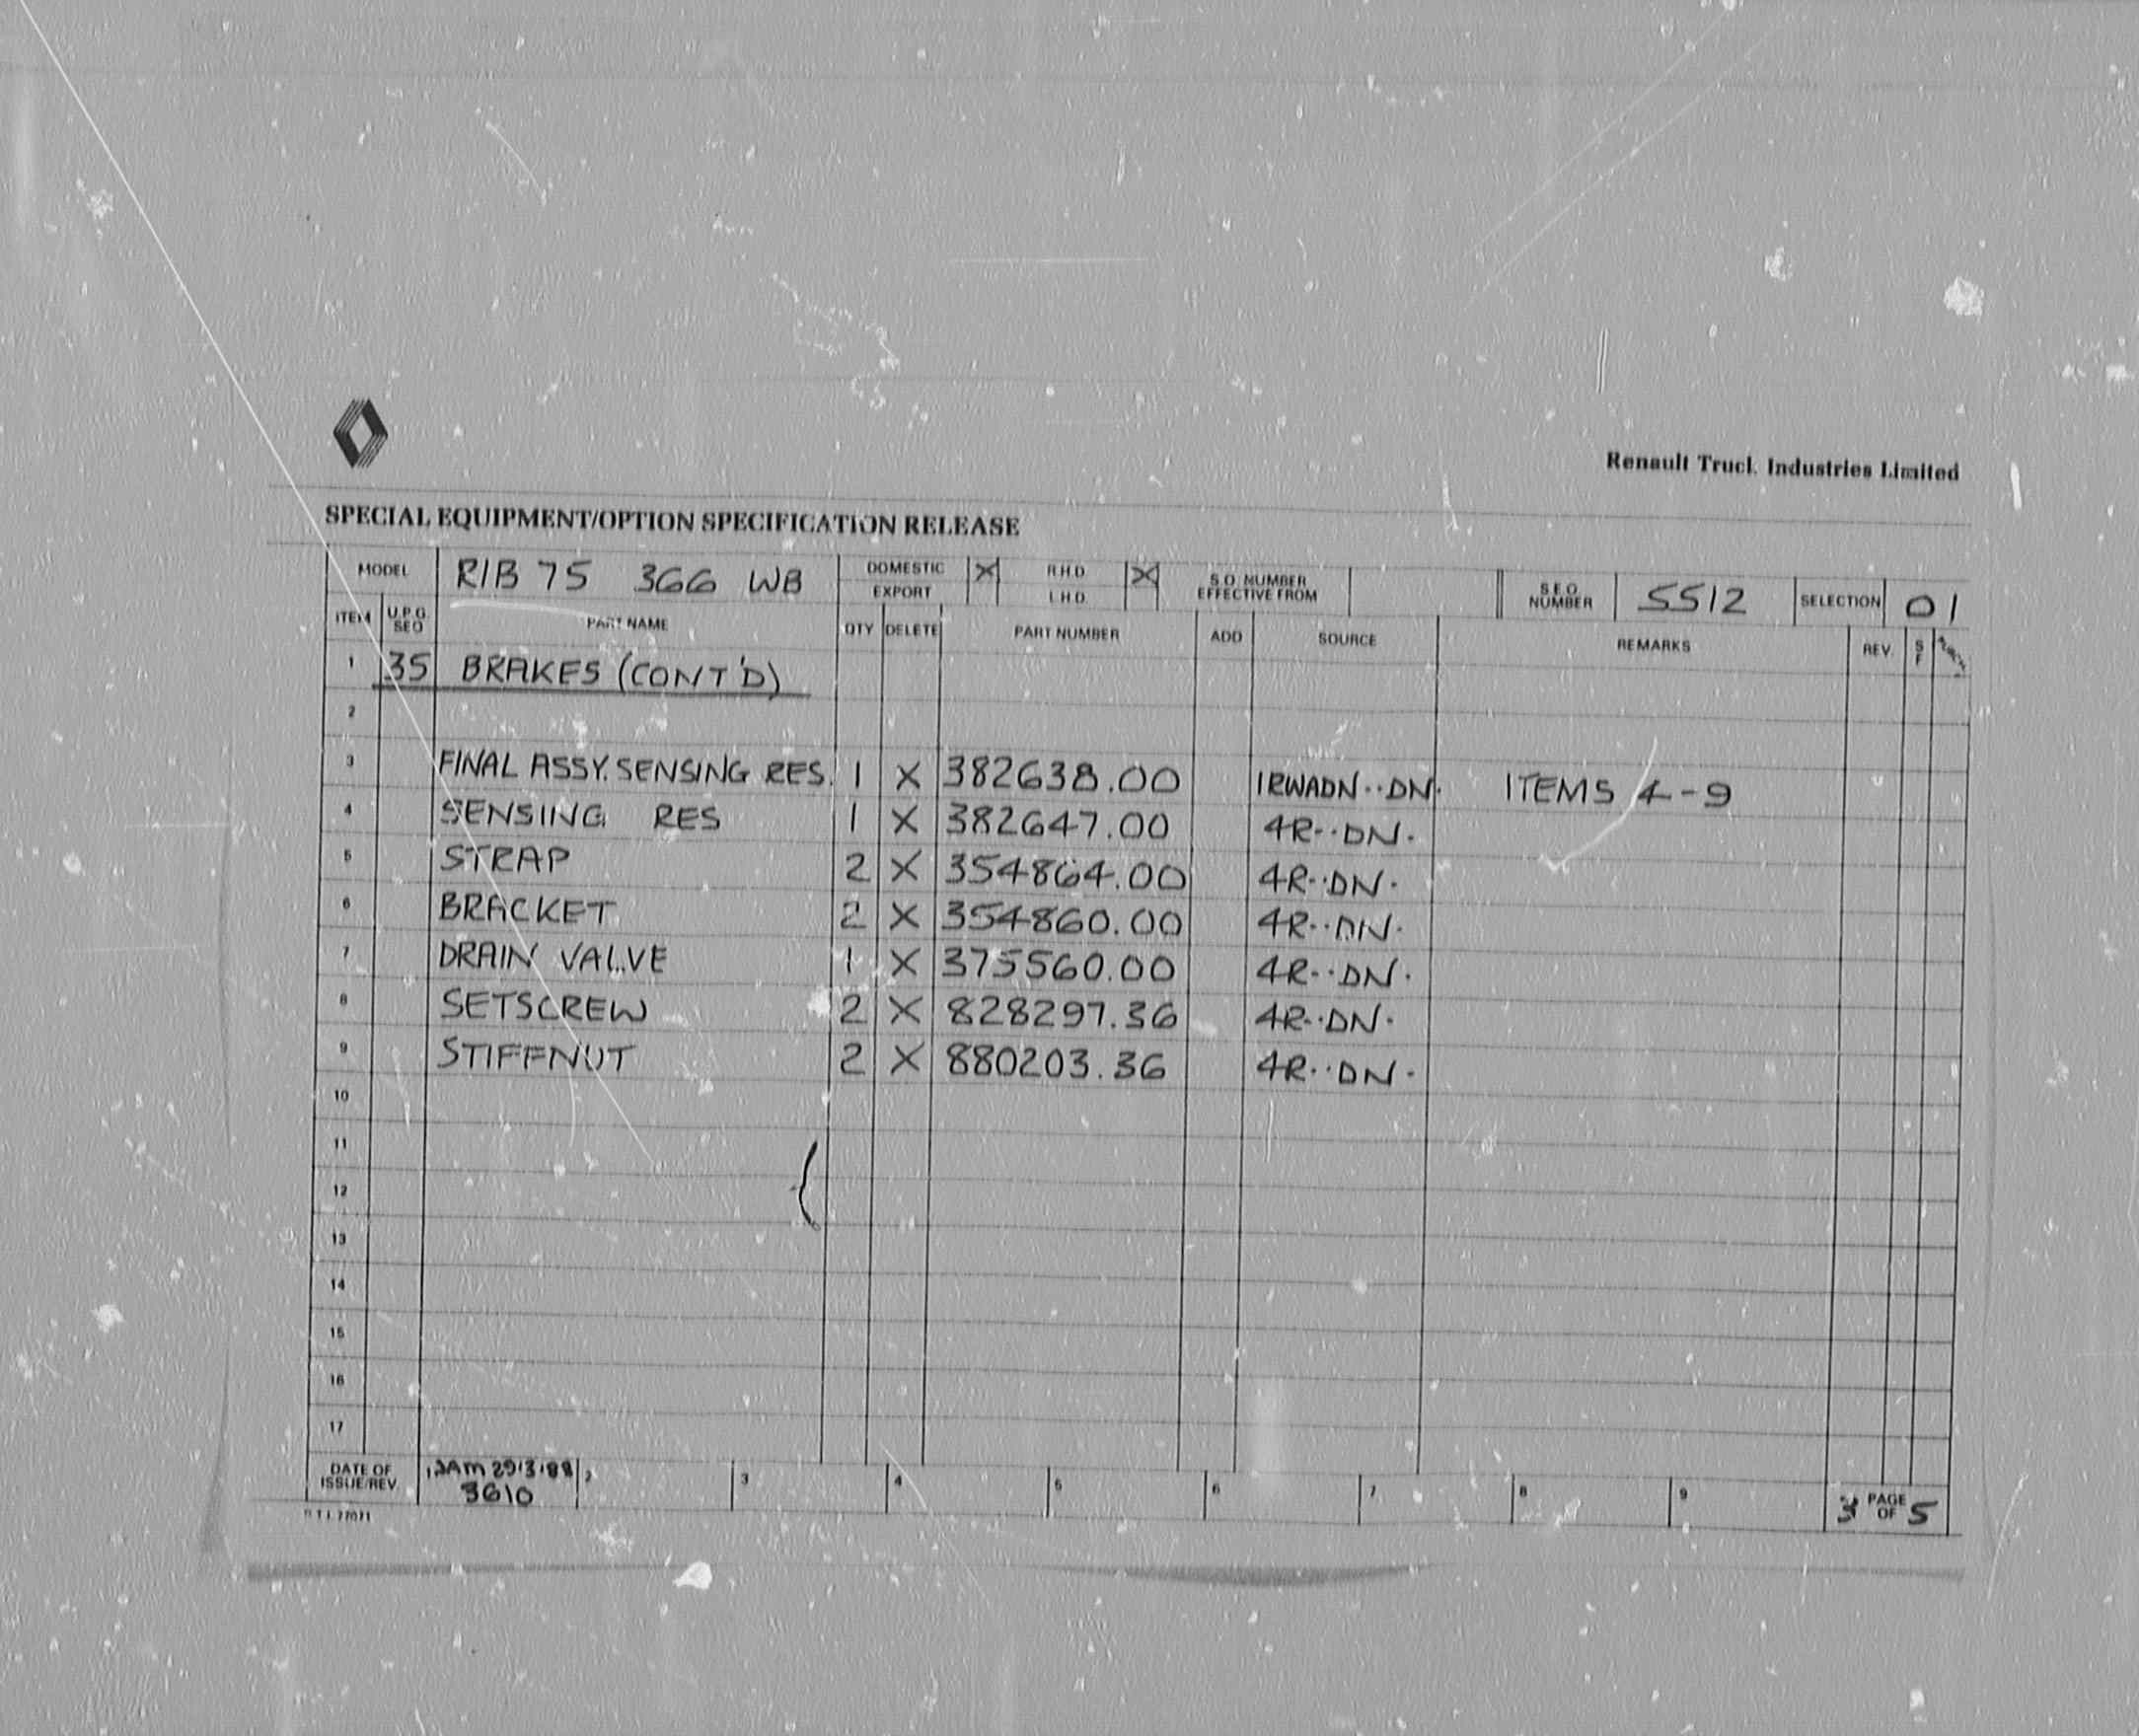 Renault Truck Industries Limited
SPECIAL EQUIPMENT/OPTION SPECIFICATION RELEASE
MODEL RIB 75 366 WB DOMESTIC X R.H.D. X S.O. NUMBER EFFECTIVE FROM S.E.O. NUMBER 5512 SELECTION 01
EXPORT L.H.D.
ITEM U.P.G. SEQ PART NAME QTY DELETE PART NUMBER ADD SOURCE REMARKS REV. S F
1 35 BRAKES (CONT'D)
2
3 FINAL ASSY. SENSING RES. 1 X 382638.00 1RWADN··DN· ITEMS 4-9
4 SENSING RES 1 X 382647.00 4R··DN·
5 STRAP 2 X 354864.00 4R··DN·
6 BRACKET 2 X 354860.00 4R··DN·
7 DRAIN VALVE 1 X 375560.00 4R··DN·
8 SETSCREW 2 X 828297.36 4R··DN·
9 STIFFNUT 2 X 880203.36 4R··DN·
10
11
12
13
14
15
16
17
DATE OF ISSUE/REV 3610 3 4 5 6 7 8 9 3 PAGE OF 5